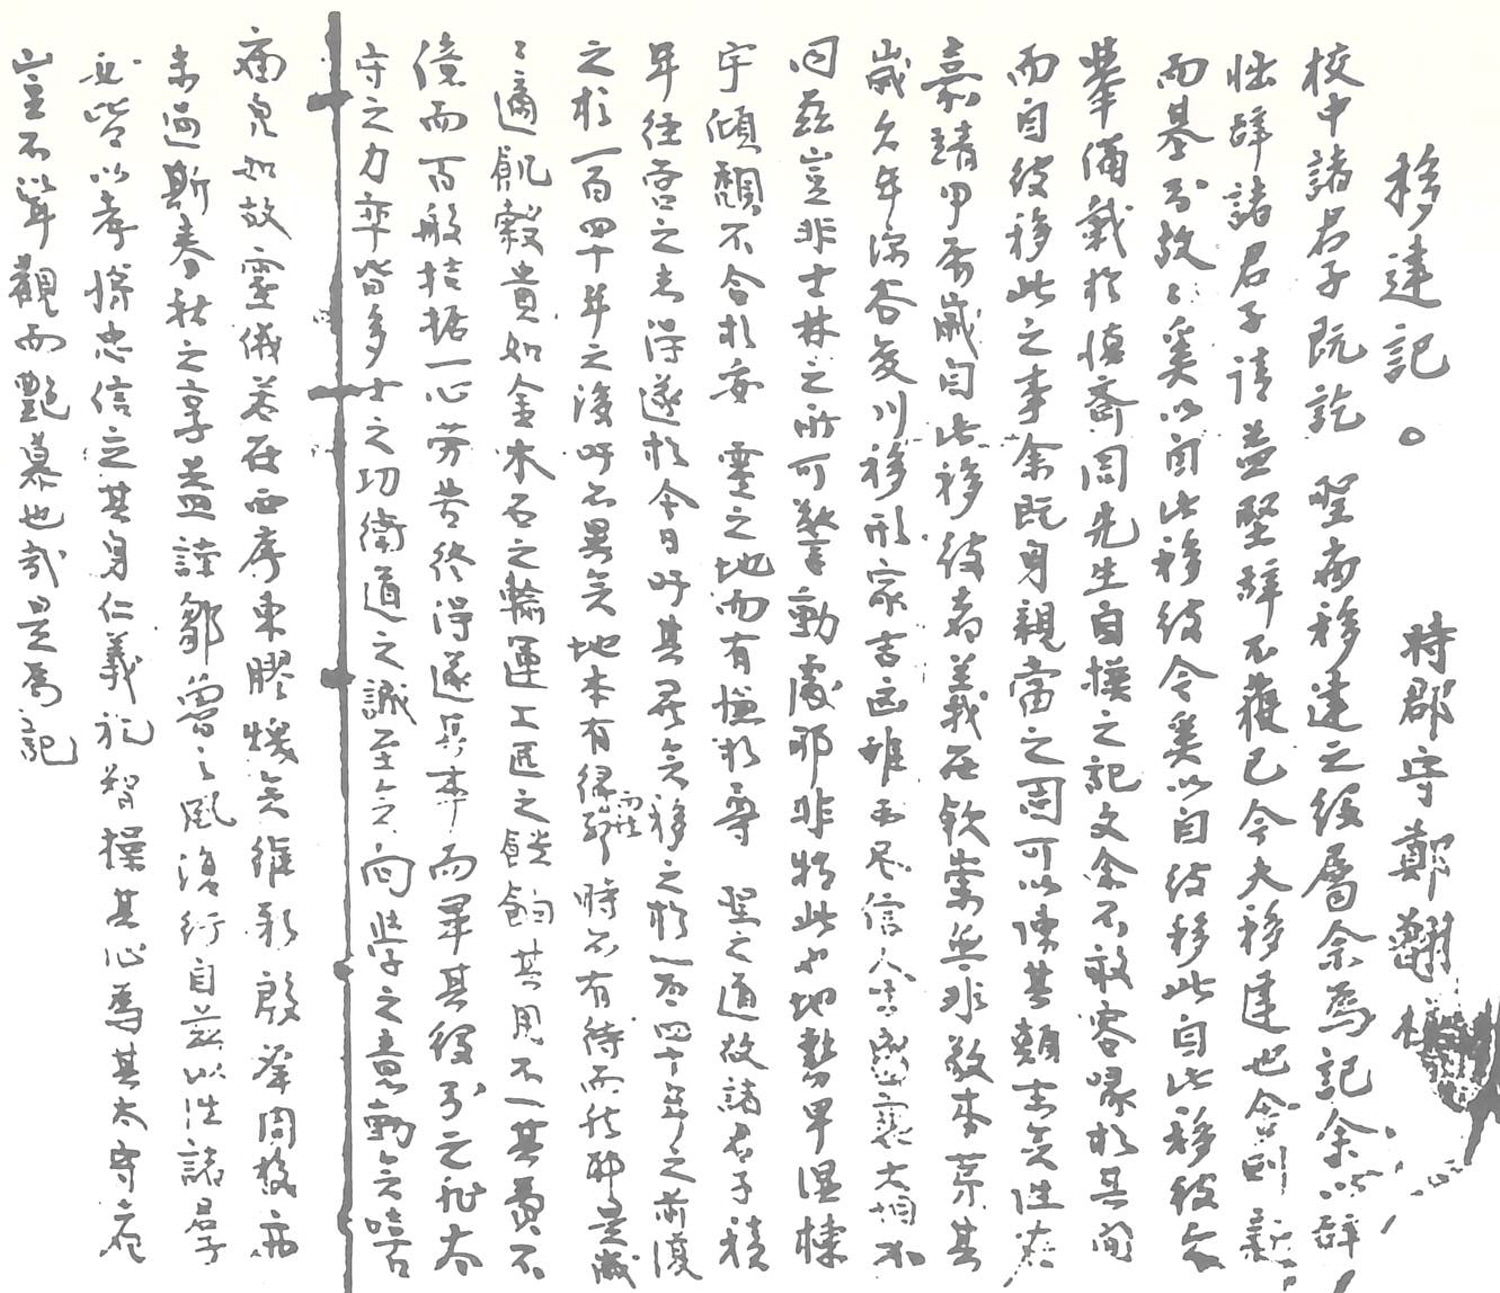 移建記。 時郡守鄭
校中諸君子既訖 聖廟移建之役屬余爲記余以辭
拙辭諸君子請益堅辭不獲已今夫移建也舍則新
而基則故故奚以自此移彼今奚以自彼移此自此移彼之
擧備載於愼齋周先生自撰之記文余不敢容喙於其間
而自彼移此之事余旣身親當之固可以陳其顚末矣
嘉靖甲 歲自此移彼者義在欽崇無非敬本
歲久年深谷變川移形家吉凶雖不足信人 盛衰大相不
同玆豈非士林之所可警動處耶非特此也地勢卑濕棟
宇傾頹不合於妥 靈之地而有慊於尊 聖之道故諸君子積
年經營之志得遂於今日吁其 矣移之於一百四十年之前復
之於一百四十年之後吁亦異矣地本有緣 時亦有待而然耶是歲
適飢穀貴如金木石之輸運工匠之饋餉其用不一其費不
億而百般拮据一心勞苦終得遂其事而畢其役
守之力率皆多士之功衛道之誠至矣向學之意勤矣噫
廟貌如故靈儀若在西序東膠 矣維新殷 周
未過斯春秋之享 鄒魯之風復行自玆以往諸君子
必皆以孝悌忠信 其身仁義 智操其心爲其太守
豈不聳觀而艶慕也哉是爲記